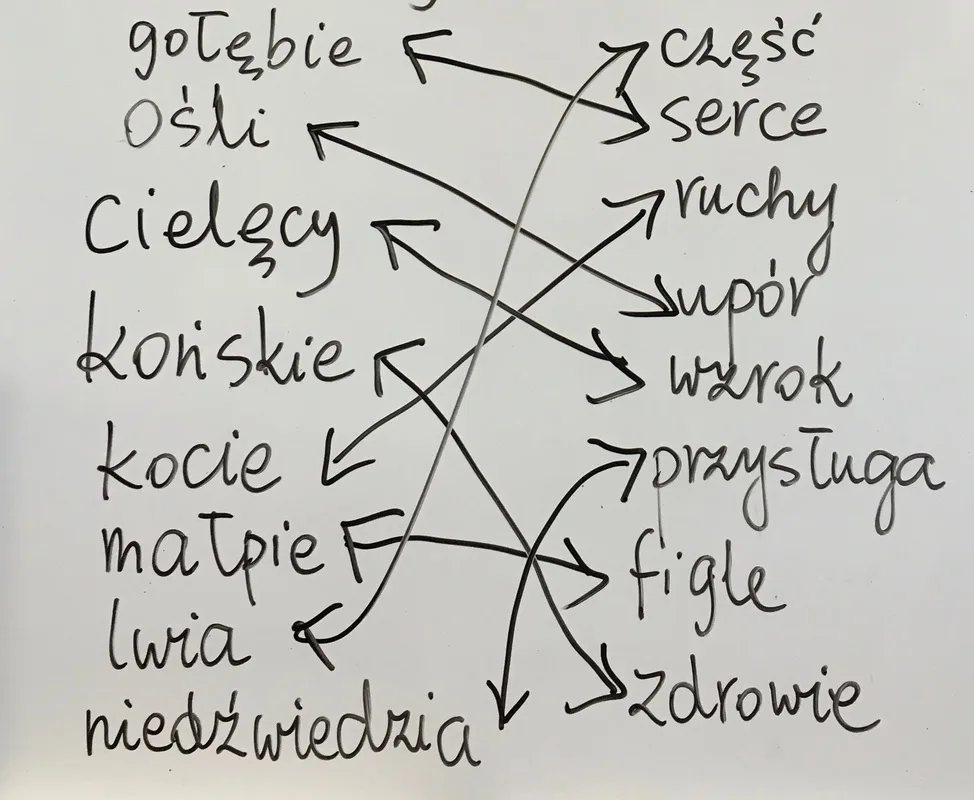 gołębie część
ośli serce
cielęcy ruchy
końskie upór
kocie wzrok
małpie przysługa
lwia figle
niedźwiedzia zdrowie